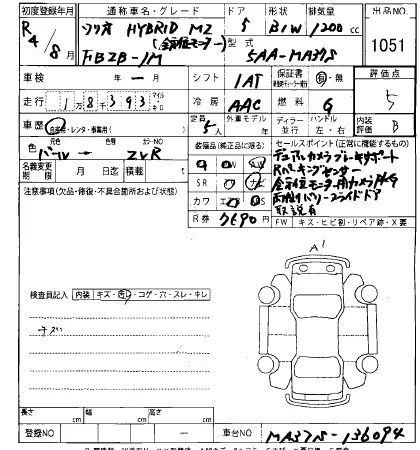 初度登録年月 通称車名・グレード ドア 形状 排気量 出品NO
R4/8月 ソリオ HYBRID MZ 5 B/W 1200cc 1051
(全方位モニター) 型式
5AA-MA37S
車検 年 ー 月 シフト IAT 保証書 有・無 評価点
走行 1万8千393 マイル キロ 冷房 AAC 燃料 G 5
車歴 自家用・レンタ・事業用( ) 定員 5人 外車モデル 年 ディーラー 並行 ハンドル 左・右 内装評価 B
色 元色 パール → カラーNO ZVR 装備品(純正品に限る) セールスポイント(正常に機能するもの)
名義変更期限 月 日迄 積載 t SR ナビ デュアルカメラブレーキサポート
注意事項(欠品・修復・不具合箇所および状態) カワ Rパーキングセンサー
R券 7690 全方位モニター用カメラPKG
取説有
FW キズ・ヒビ割・リペア跡・X要
A1
検査員記入 内装 キズ・汚・コゲ・穴・スレ・キレ
長さ cm 幅 cm 高さ cm
登録NO ー 車台NO MA37S-136094